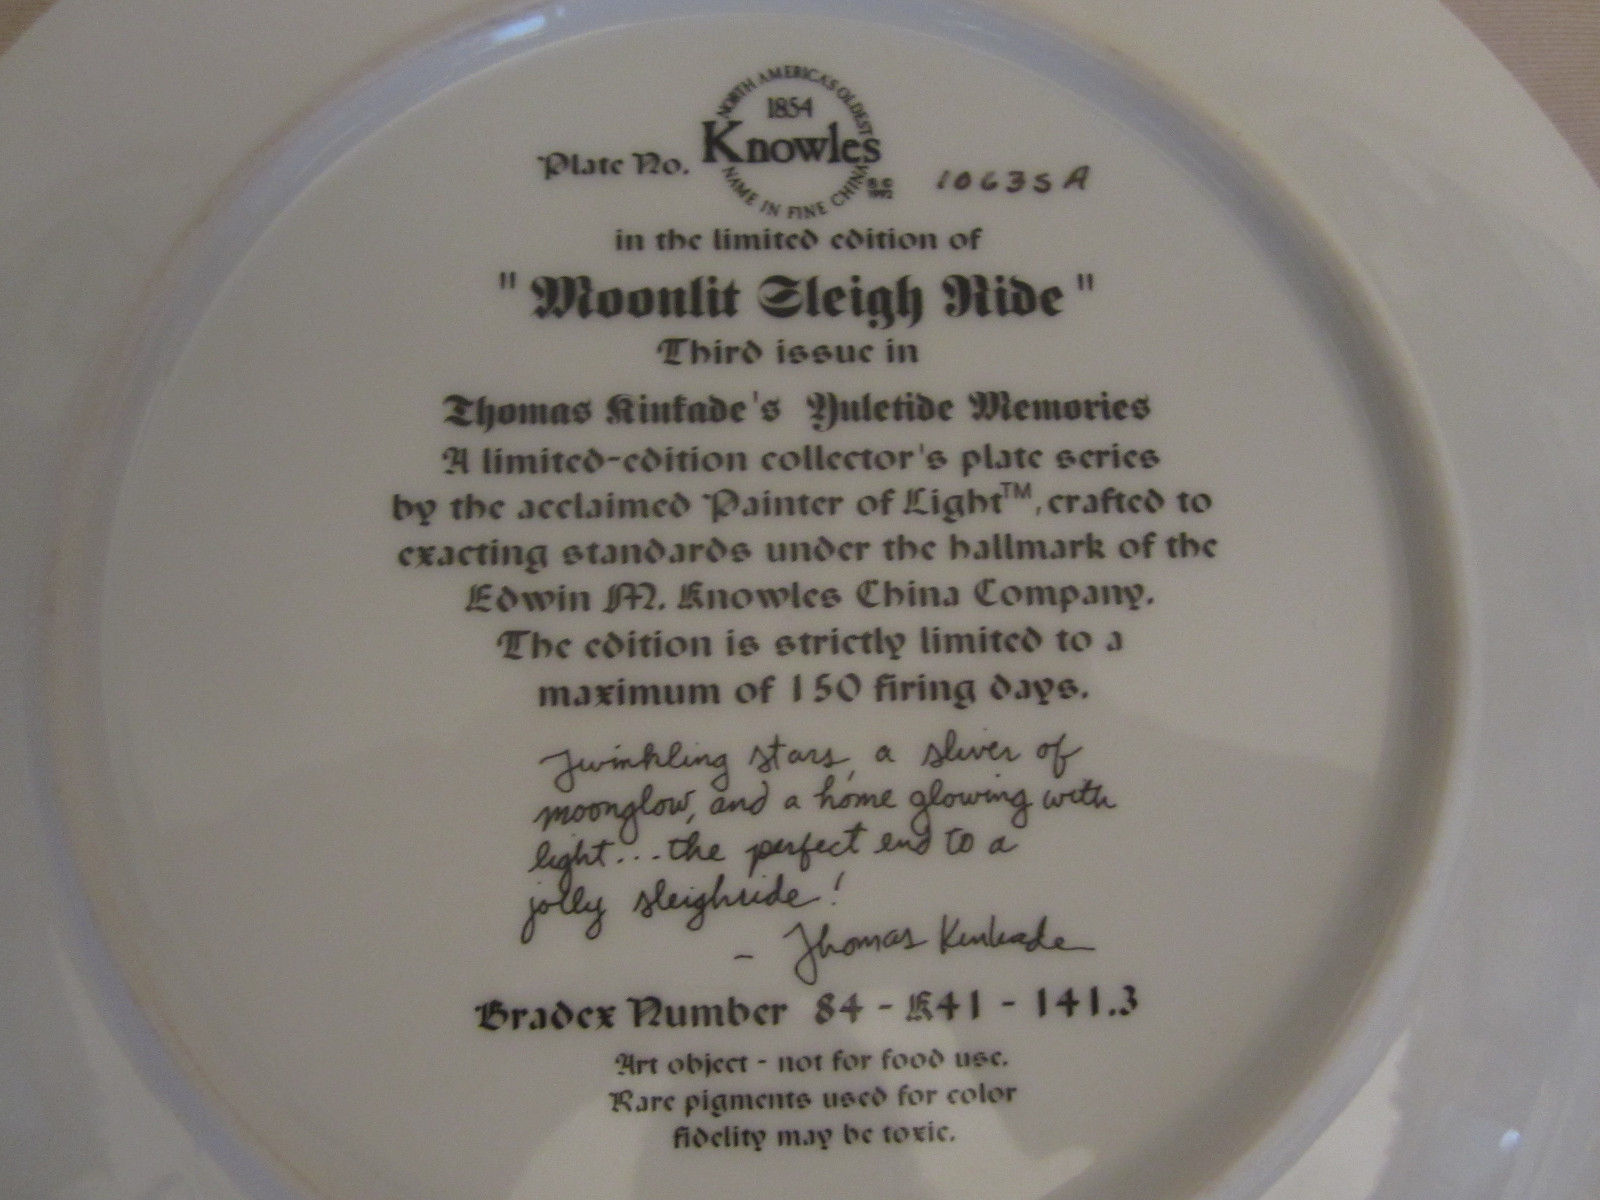 NORTH AMERICA'S OLDEST
1854
Knowles
NAME IN FINE CHINA
B.G.
1992
Plate No. 10635A
in the limited edition of
"Moonlit Sleigh Ride"
Third issue in
Thomas Kinkade's Yuletide Memories
A limited-edition collector's plate series
by the acclaimed Painter of Light™, crafted to
exacting standards under the hallmark of the
Edwin M. Knowles China Company.
The edition is strictly limited to a
maximum of 150 firing days.
Twinkling stars, a sliver of
moonglow, and a home glowing with
light...the perfect end to a
jolly sleighride!
- Thomas Kinkade
Bradex Number 84-K41-141.3
Art object - not for food use.
Rare pigments used for color
fidelity may be toxic.